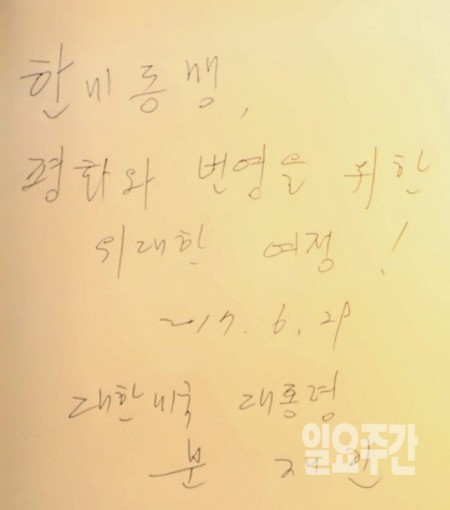 한미동맹,
평화와 번영을 위한
위대한 여정!
2017. 6. 28
대한미국 대통령
문재인
일요주간